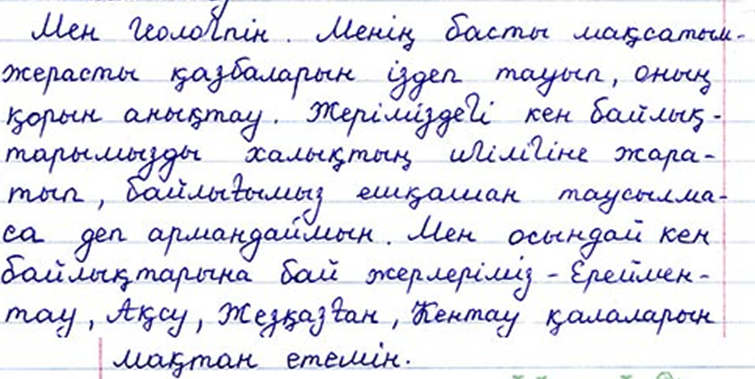 Мен геологпін. Менің басты мақсатым-
жерасты қазбаларын іздеп тауып, оның
қорын анықтау. Жеріміздегі кен байлық-
тарымызды халықтың игілігіне жара-
тып, байлығымыз ешқашан таусылма-
са деп армандаймын. Мен осындай кен
байлықтарына бай жерлеріміз - Ереймен-
тау, Ақсу, Жезқазған, Кентау қалаларын
мақтан етемін.